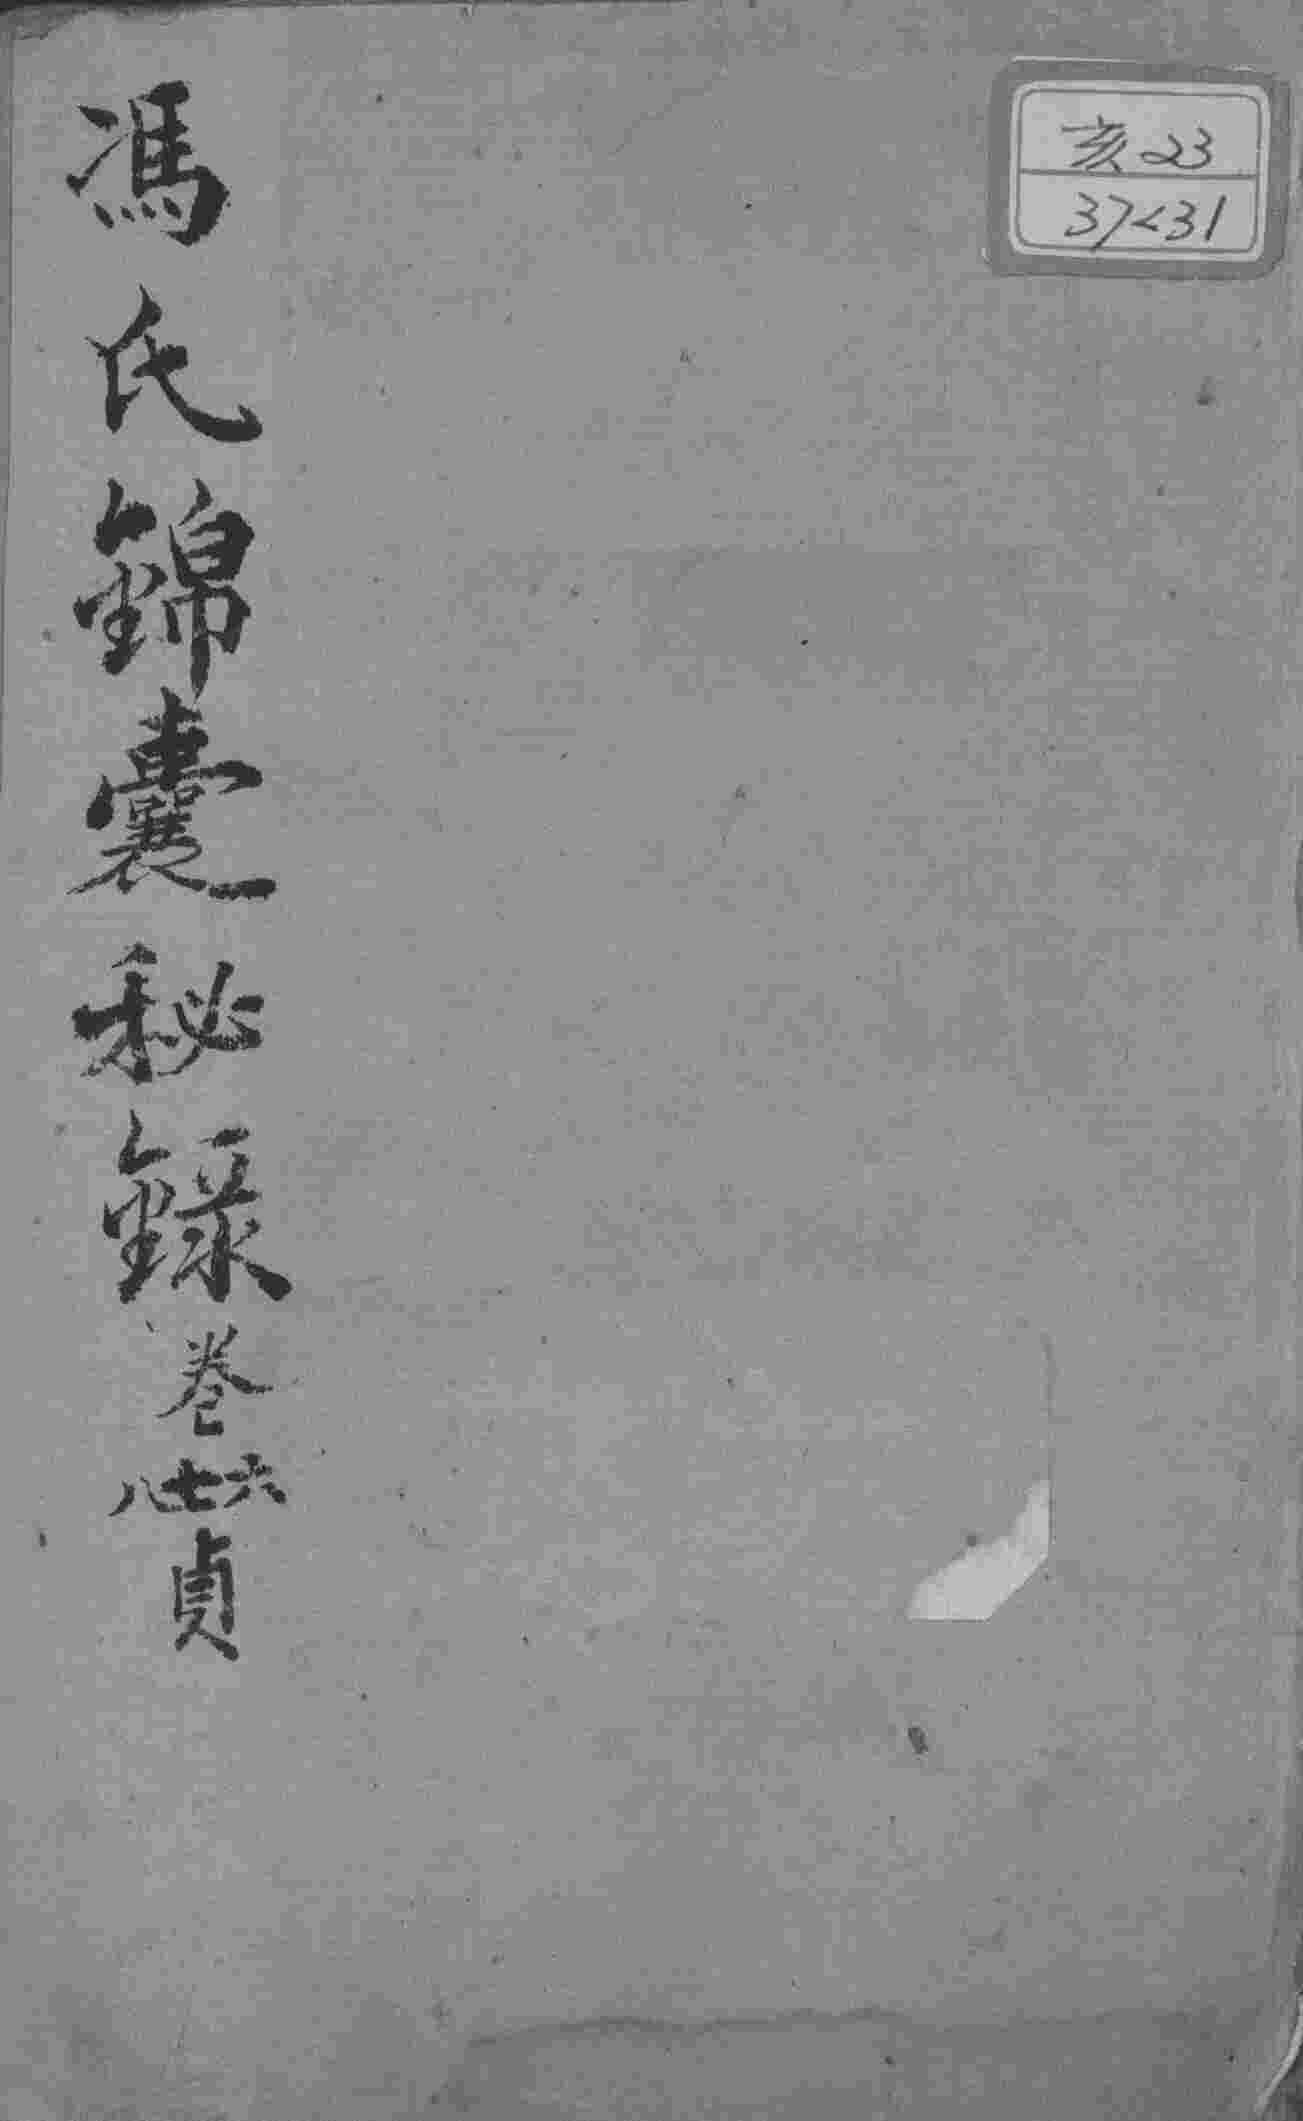 亥23
37<31
馮氏錦囊秘錄卷六七八貞